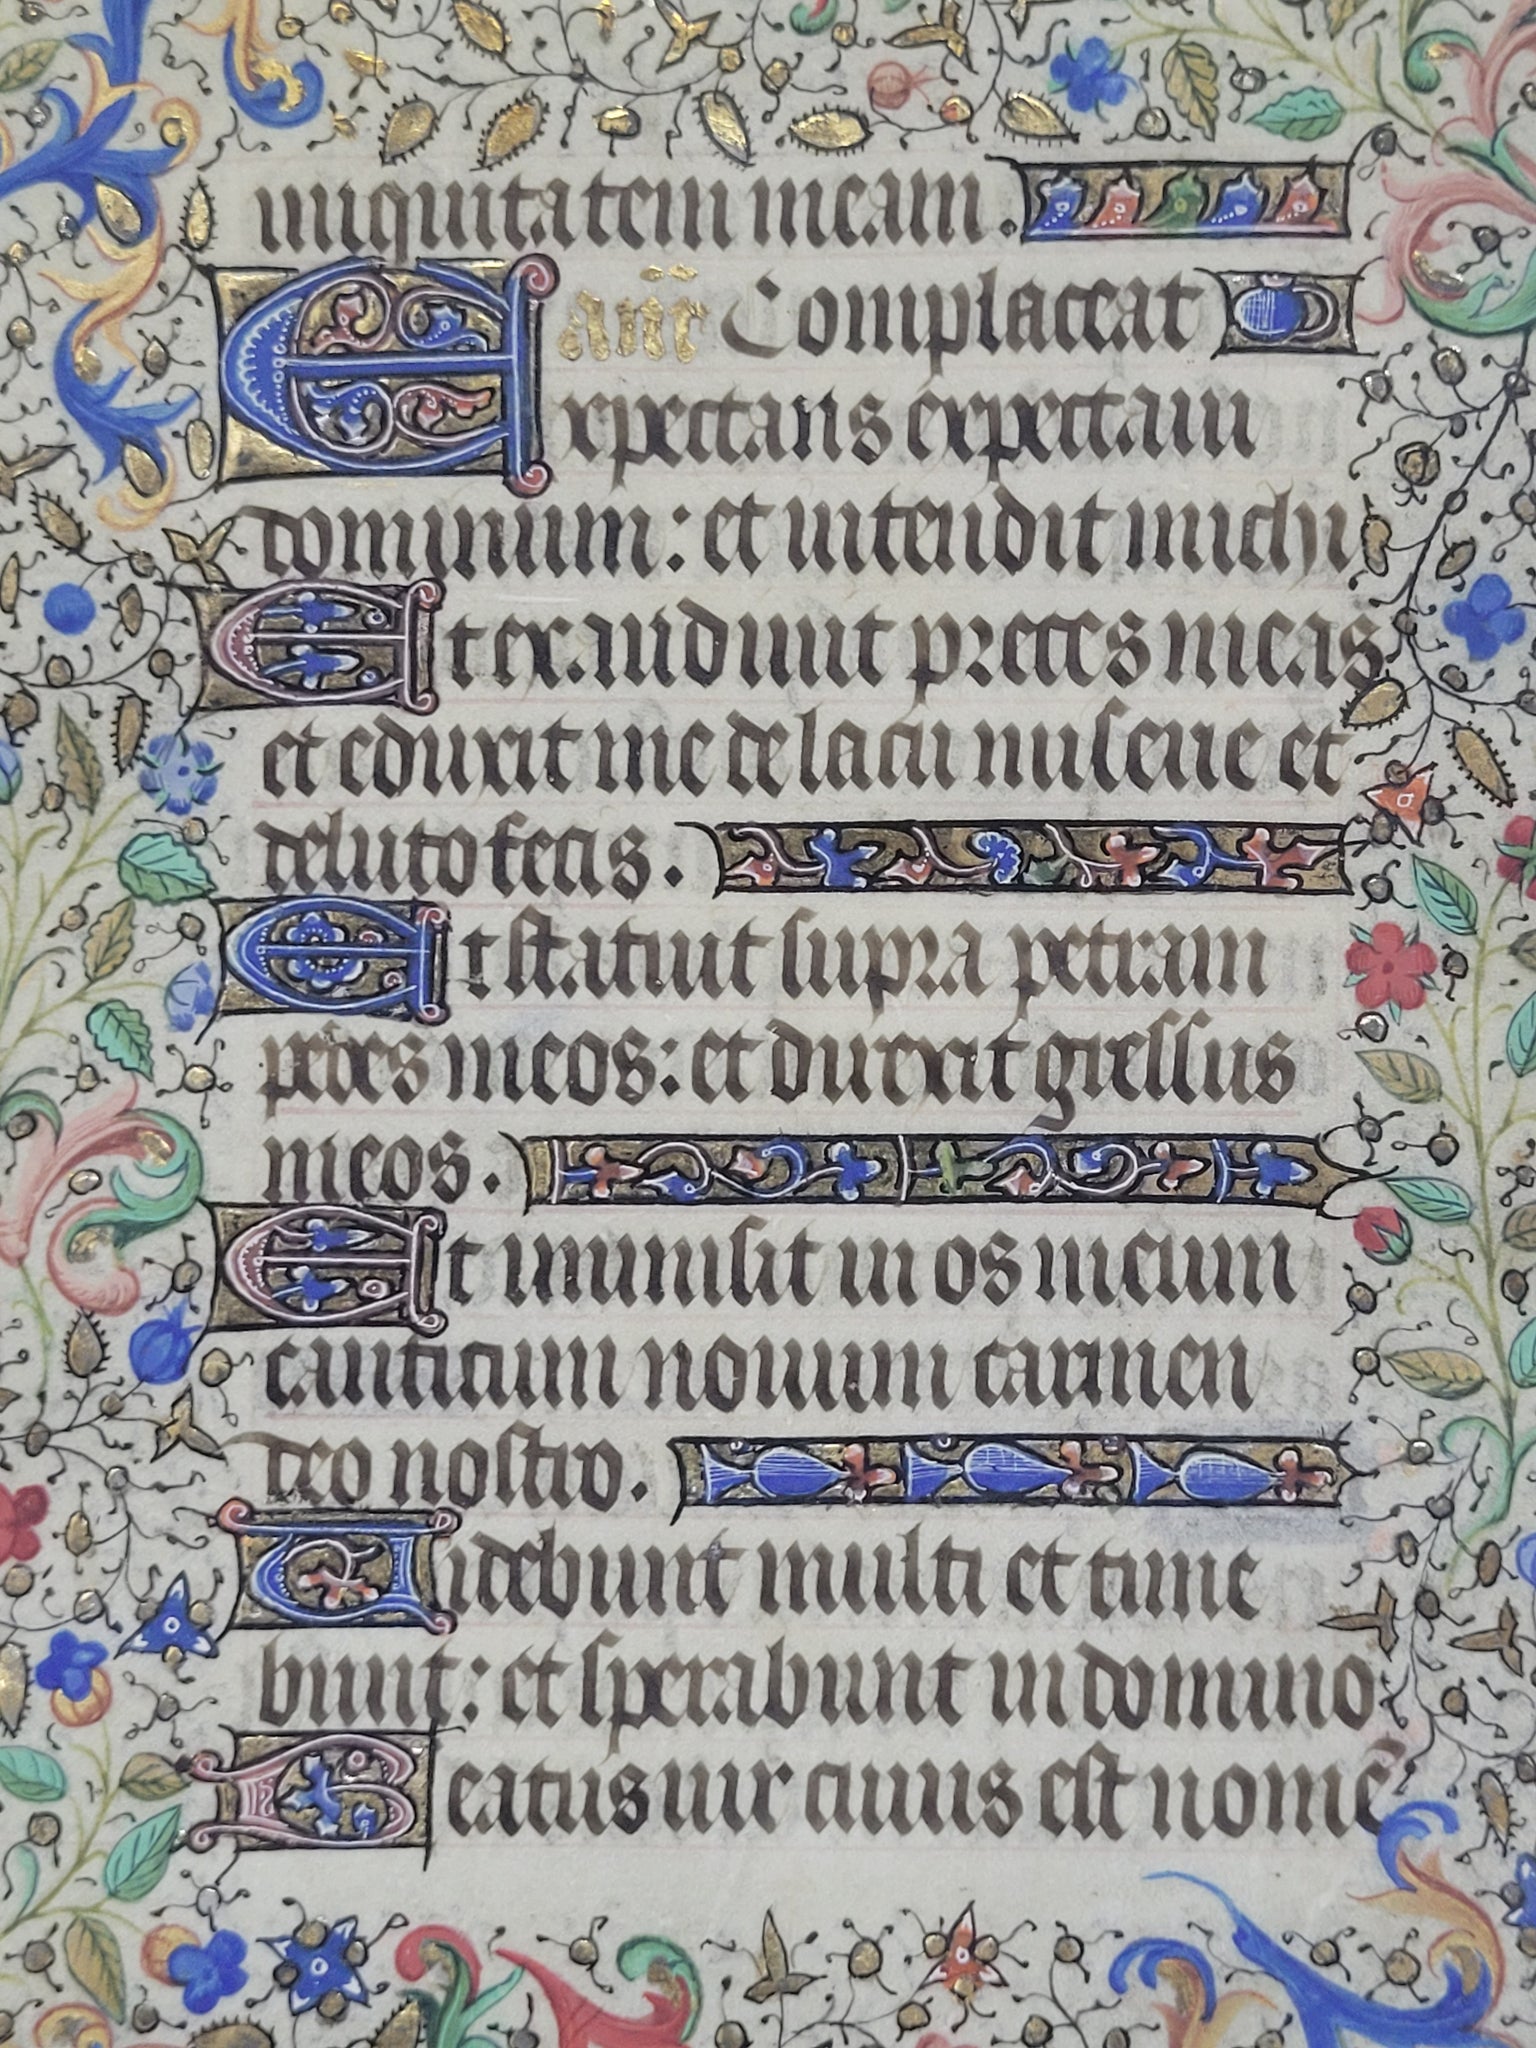 iniquitatem meam.
an̄e Complaceat
Expectans expectaui
dominum: et intendit michi
Et exaudiuit preces meas
et eduxit me de lacu miserie et
deluto fecis.
Et statuit supra petram
pedes meos: et direxit gressus
meos.
Et inmisit in os meum
canticum nouum carmen
deo nostro.
Uidebunt multi et time
bunt: et sperabunt in domino
Beatus uir cuius est nomē